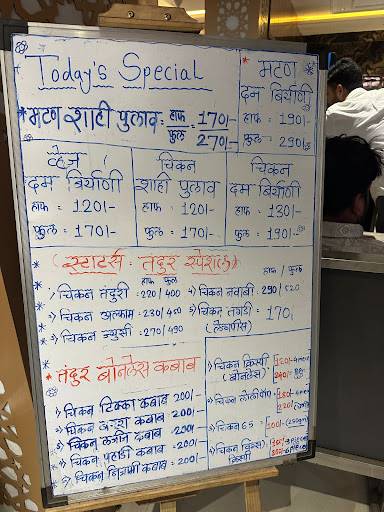 Today's Special
मटण शाही पुलाव = हाफ = 170/-
फुल = 270/-
मटण
दम बिर्याणी
हाफ = 190/-
फुल = 290/-
व्हेज
दम बिर्याणी
हाफ = 120/-
फुल = 170/-
चिकन
शाही पुलाव
हाफ = 120/-
फुल = 170/-
चिकन
दम बिर्याणी
हाफ = 130/-
फुल = 190/-
(स्टार्टर्स : तंदुर स्पेशल)
हाफ फुल
चिकन तंदुरी = 220/400
चिकन अल्फाम = 230/450
३) चिकन ज्युसी = 270/490
हाफ / फुल
४) चिकन नवाबी = 290/520
५) चिकन तंगडी = 170/
तंदुर बोनलेस कबाब
१) चिकन टिक्का कबाब 200/-
कबाब - 200/-
चिकन कबाब - 200/-
चिकन पहाडी कबाब - 200/-
५) चिकन कबाब = 200/-
चिकन क्रिस्पी
(बोनलेस)
240/-
चिकन लोलीपॉप
चिकन 65
चिकन